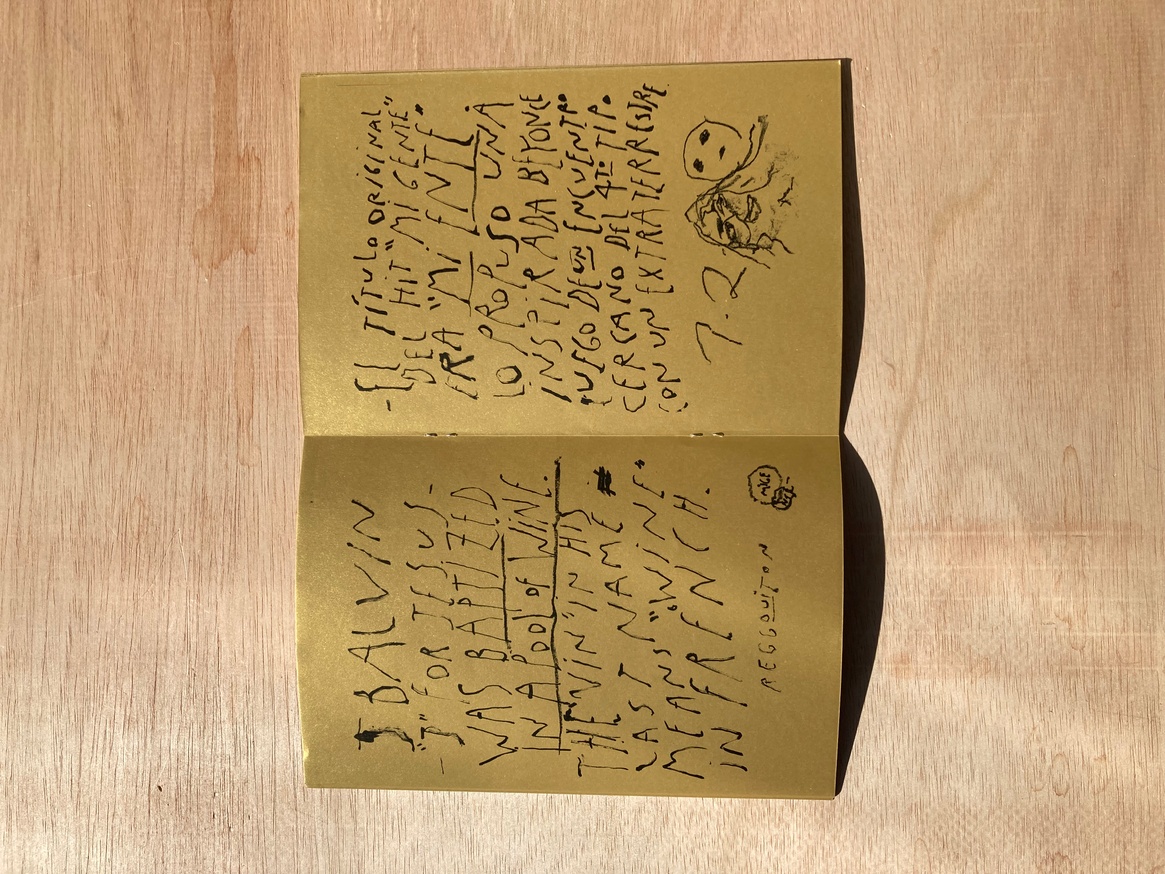 J BALVIN
-"J" FOR JESUS-
WAS BAPTIZED
IN A POOL OF WINE.
THE "VIN" IN HIS
LAST NAME
MEANS "WINE"
IN FRENCH.
REGGOUITON
MIGE
-EL TÍTULO ORIGINAL
DEL HIT "MI GENTE"
ERA "MI ENTE".
LO PROPUSO UNA
INSPIRADA BEYONCE
LUEGO DE UN ENCUENTRO
CERCANO DEL 4TO TIPO
CON UN EXTRATERRESTRE.